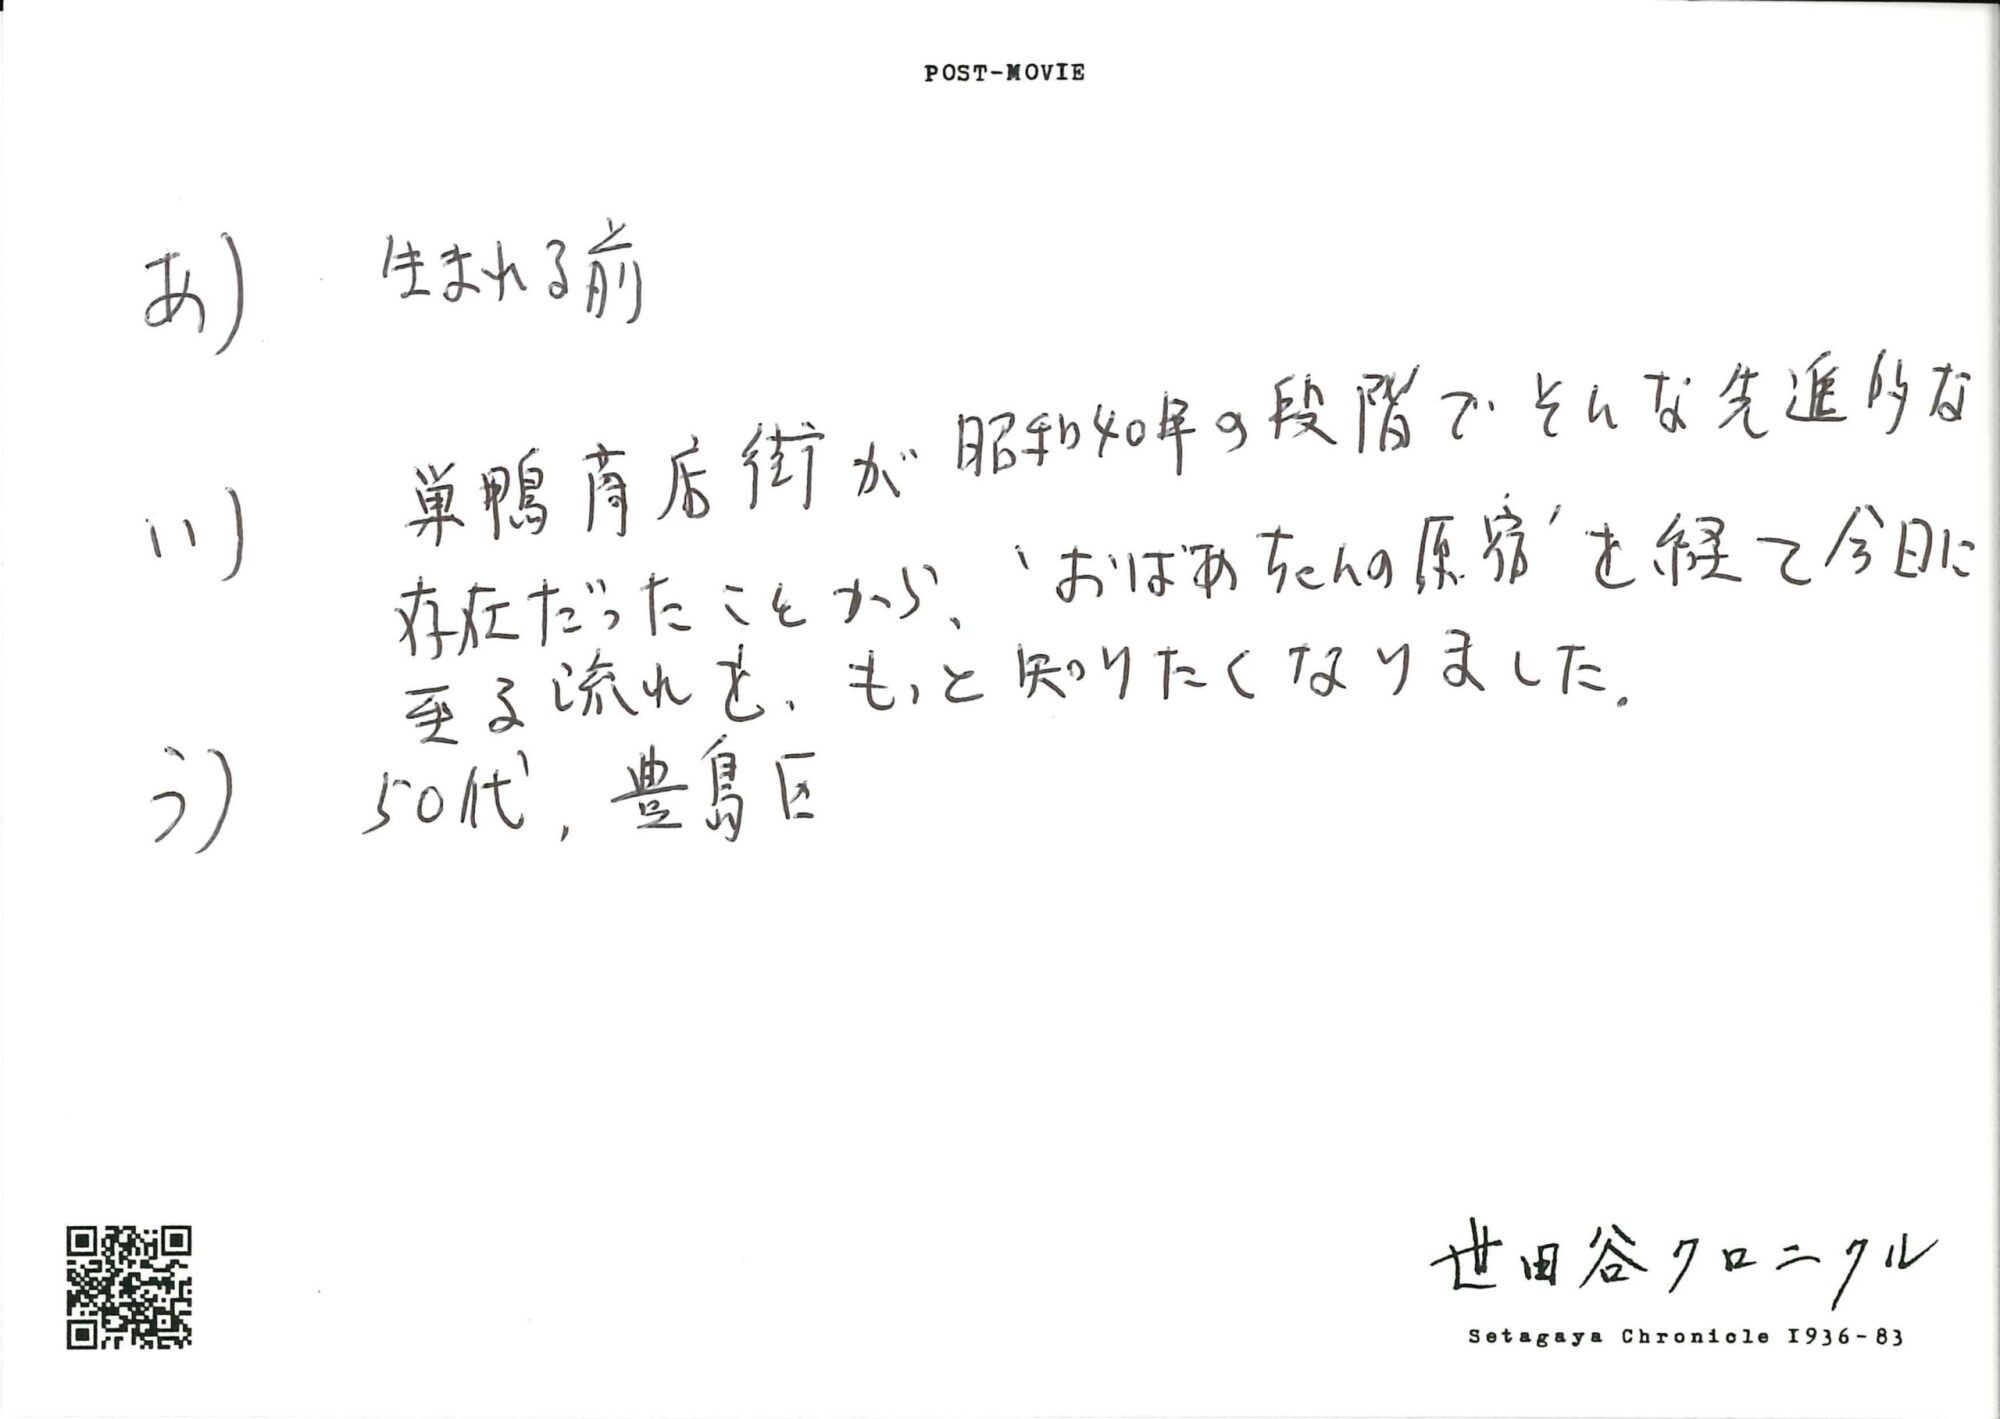 POST-MOVIE
あ) 生まれる前
い) 巣鴨商店街が昭和40年の段階でそんな先進的な
存在だったことから、‘おばあちゃんの原宿’を経て今日に
至る流れを、もっと知りたくなりました.
う) 50代, 豊島区
世田谷クロニクル
Setagaya Chronicle 1936-83